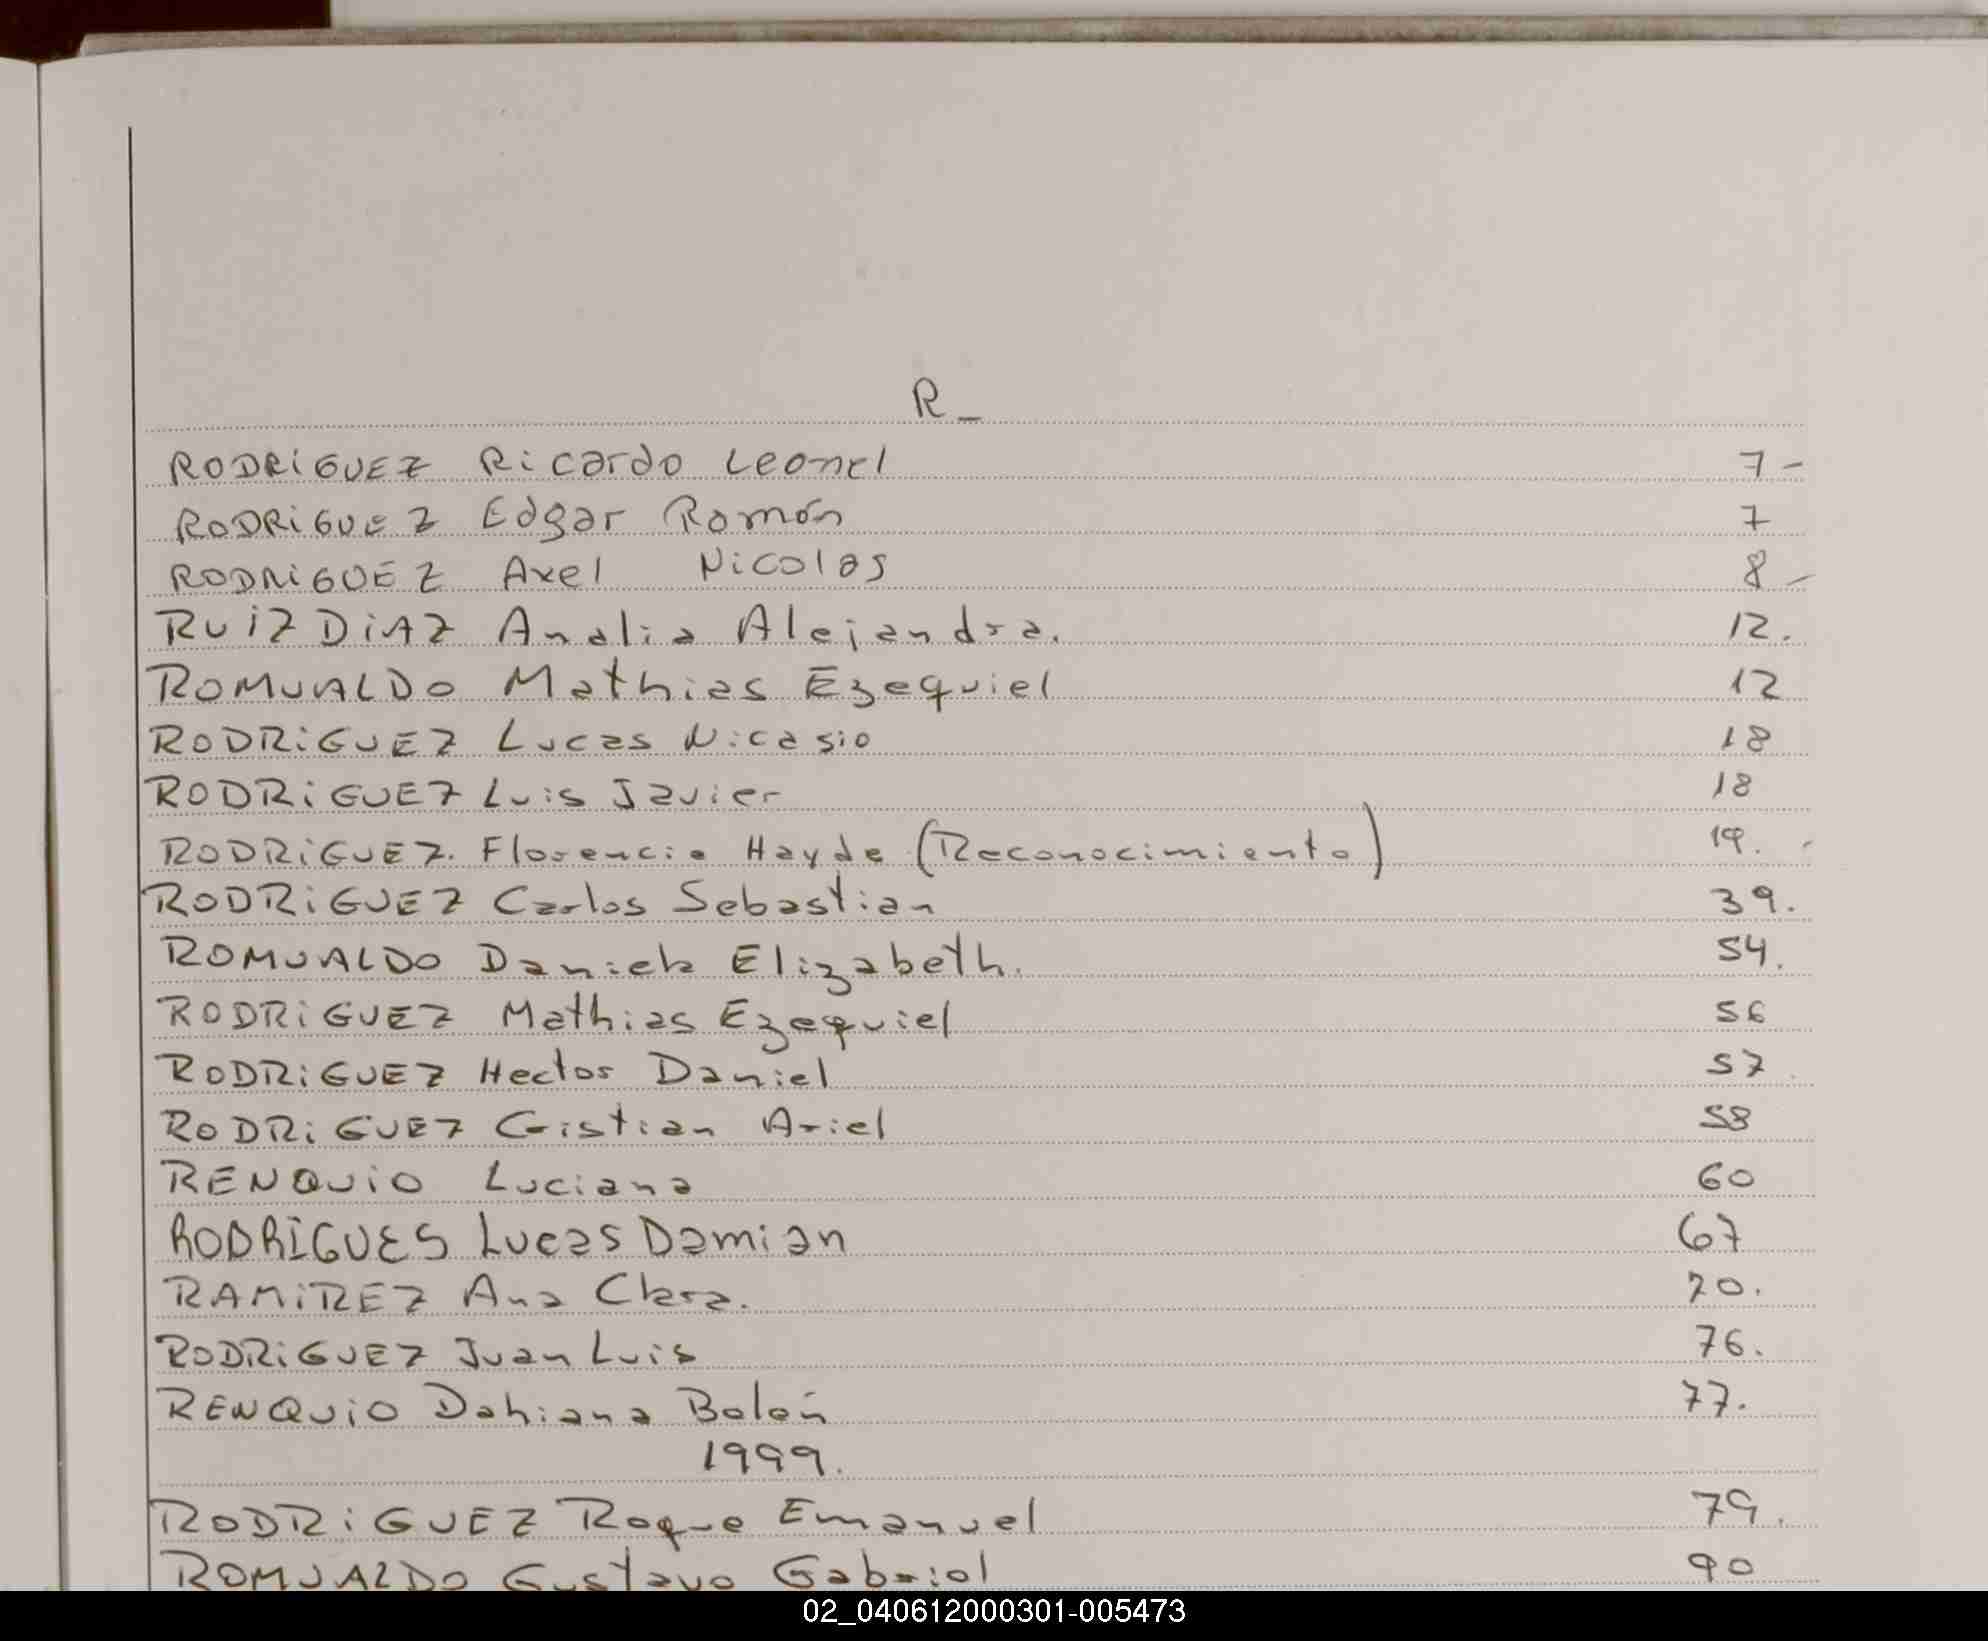 R_
RODRIGUEZ Ricardo Leonel 7-
RODRIGUEZ Edgar Román 7
RODRIGUEZ Axel Nicolas 8-
RUIZ DIAZ Analia Alejandra. 12.
ROMUALDO Mathias Ezequiel 12
RODRIGUEZ Lucas Nicasio 18
RODRIGUEZ Luis Javier 18
RODRIGUEZ. Florencia Hayde (Reconocimiento) 19.
RODRIGUEZ Carlos Sebastian 39.
ROMUALDO Daniela Elizabeth. 54.
RODRIGUEZ Mathias Ezequiel 56
RODRIGUEZ Hector Daniel 57
RODRIGUEZ Cristian Ariel 58
RENQUIO Luciana 60
RODRIGUES Lucas Damian 67
RAMIREZ Ana Clara. 70.
RODRIGUEZ Juan Luis 76.
RENQUIO Dahiana Belén 77.
1999.
RODRIGUEZ Roque Emanuel 79.
ROMUALDO Gustavo Gabriel 90
02_040612000301-005473